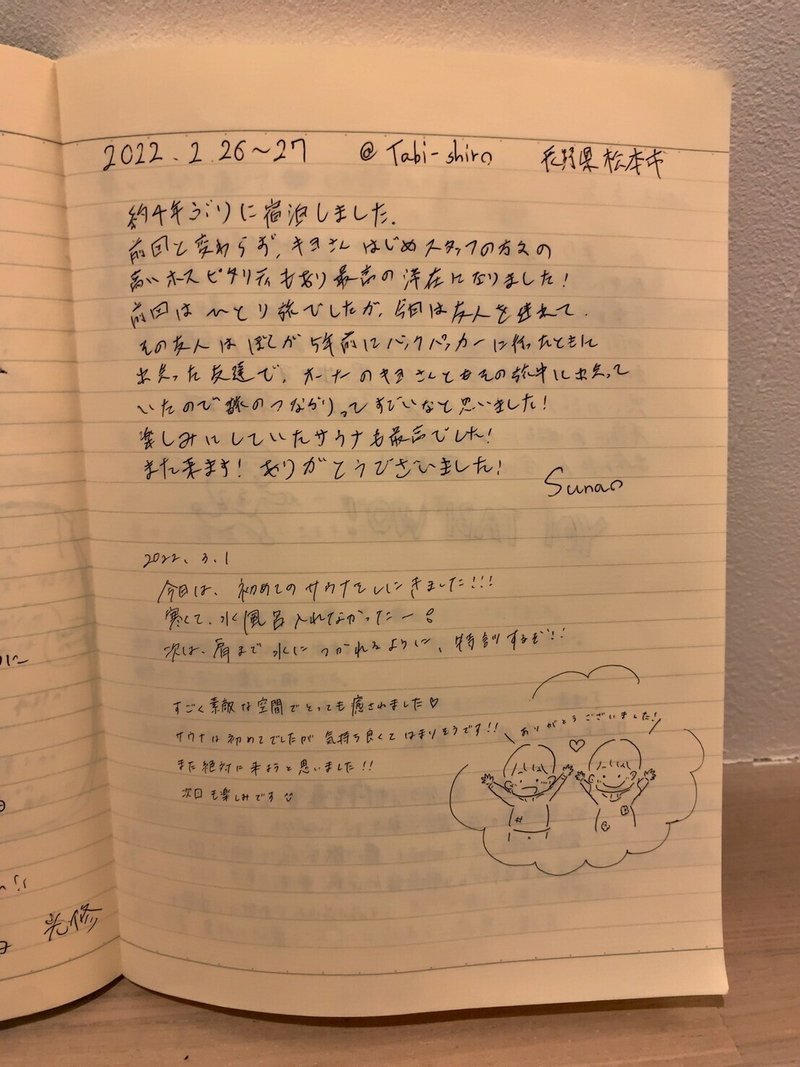 2022.2.26～27 @Tabi-shiro 長野県松本市
約4年ぶりに宿泊しました.
前回と変わらず、キヨさんはじめスタッフの方々の
高いホスピタリティもあり最高の滞在になりました!
前回はひとり旅でしたが、今回は友人を連れて.
その友人はぼくが5年前にバックパッカーに行ったときに
出会った友達で、オーナーのキヨさんともその旅中に出会って
いたので旅のつながりってすごいなと思いました!
楽しみにしていたサウナも最高でした!
また来ます! ありがとうございました!
Sunao
2022.3.1
今日は、初めてのサウナをしにきました!!!
寒くて、水風呂入れなかったー!
次は、肩まで水につかれるように、特訓するぞ!!
すごく素敵な空間でとっても癒されました♡
サウナは初めてでしたが気持ち良くてはまりそうです!!
また絶対に来ようと思いました!!
次回も楽しみです
ありがとうございました!
光修